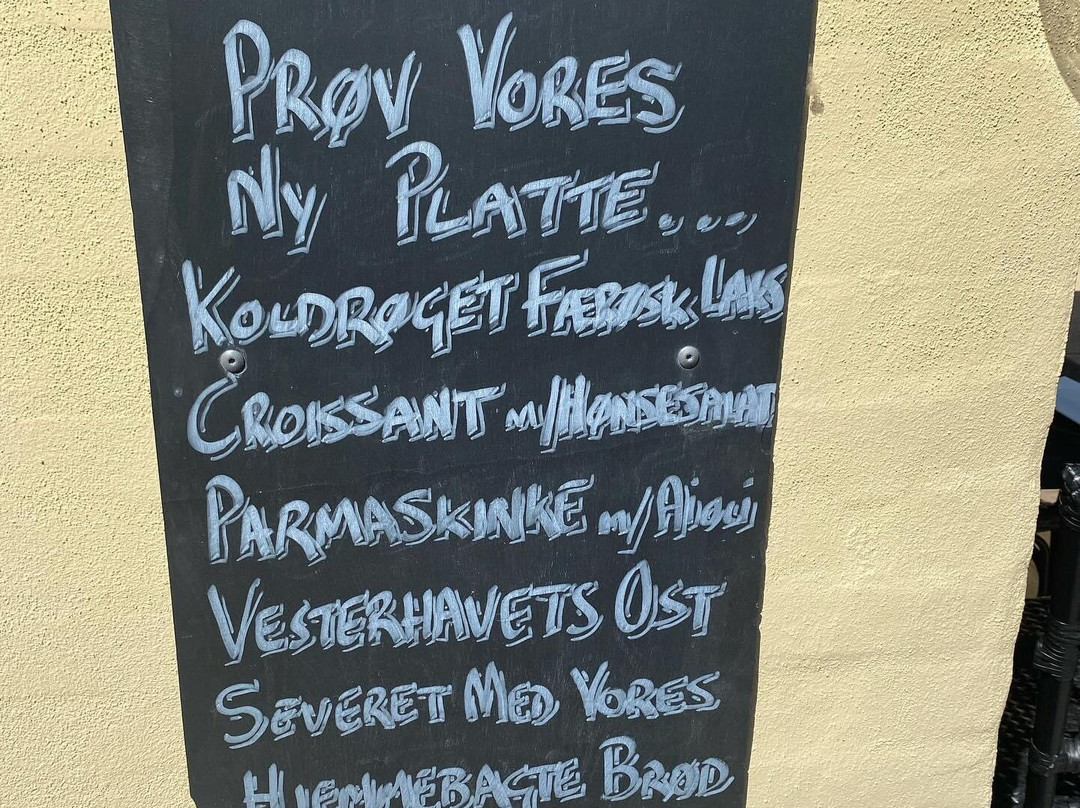 PRØV VORES
NY PLATTE....
KOLDRØGET FÆRØSK LAKS
CROISSANT m/HØNSESALAT
PARMASKINKE m/Aiøli
VESTERHAVETS OST
SEVERET MED VORES
HJEMMEBAGTE BRØD